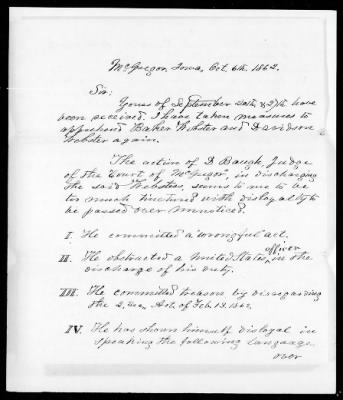 McGregor, Iowa, Oct. 6th. 1862.
Sir:
Yours of September 20th, & 27th have
been received. I have taken measures to
apprehend Baker Webster and Davidson
Webster again.
The action of D. Baugh, Judge
of the Court of McGregor, in discharging
the said Websters, seems to me to be
too much tinctured with disloyalty to
be passed over unnoticed.
I. He committed a wrongful act.
II. He obstructed a United States officer in the
discharge of his duty.
III. He committed treason by disregarding
the 2, Act. of Feb. 13. 1862.
IV. He has shown himself disloyal in
speaking the following language.
over